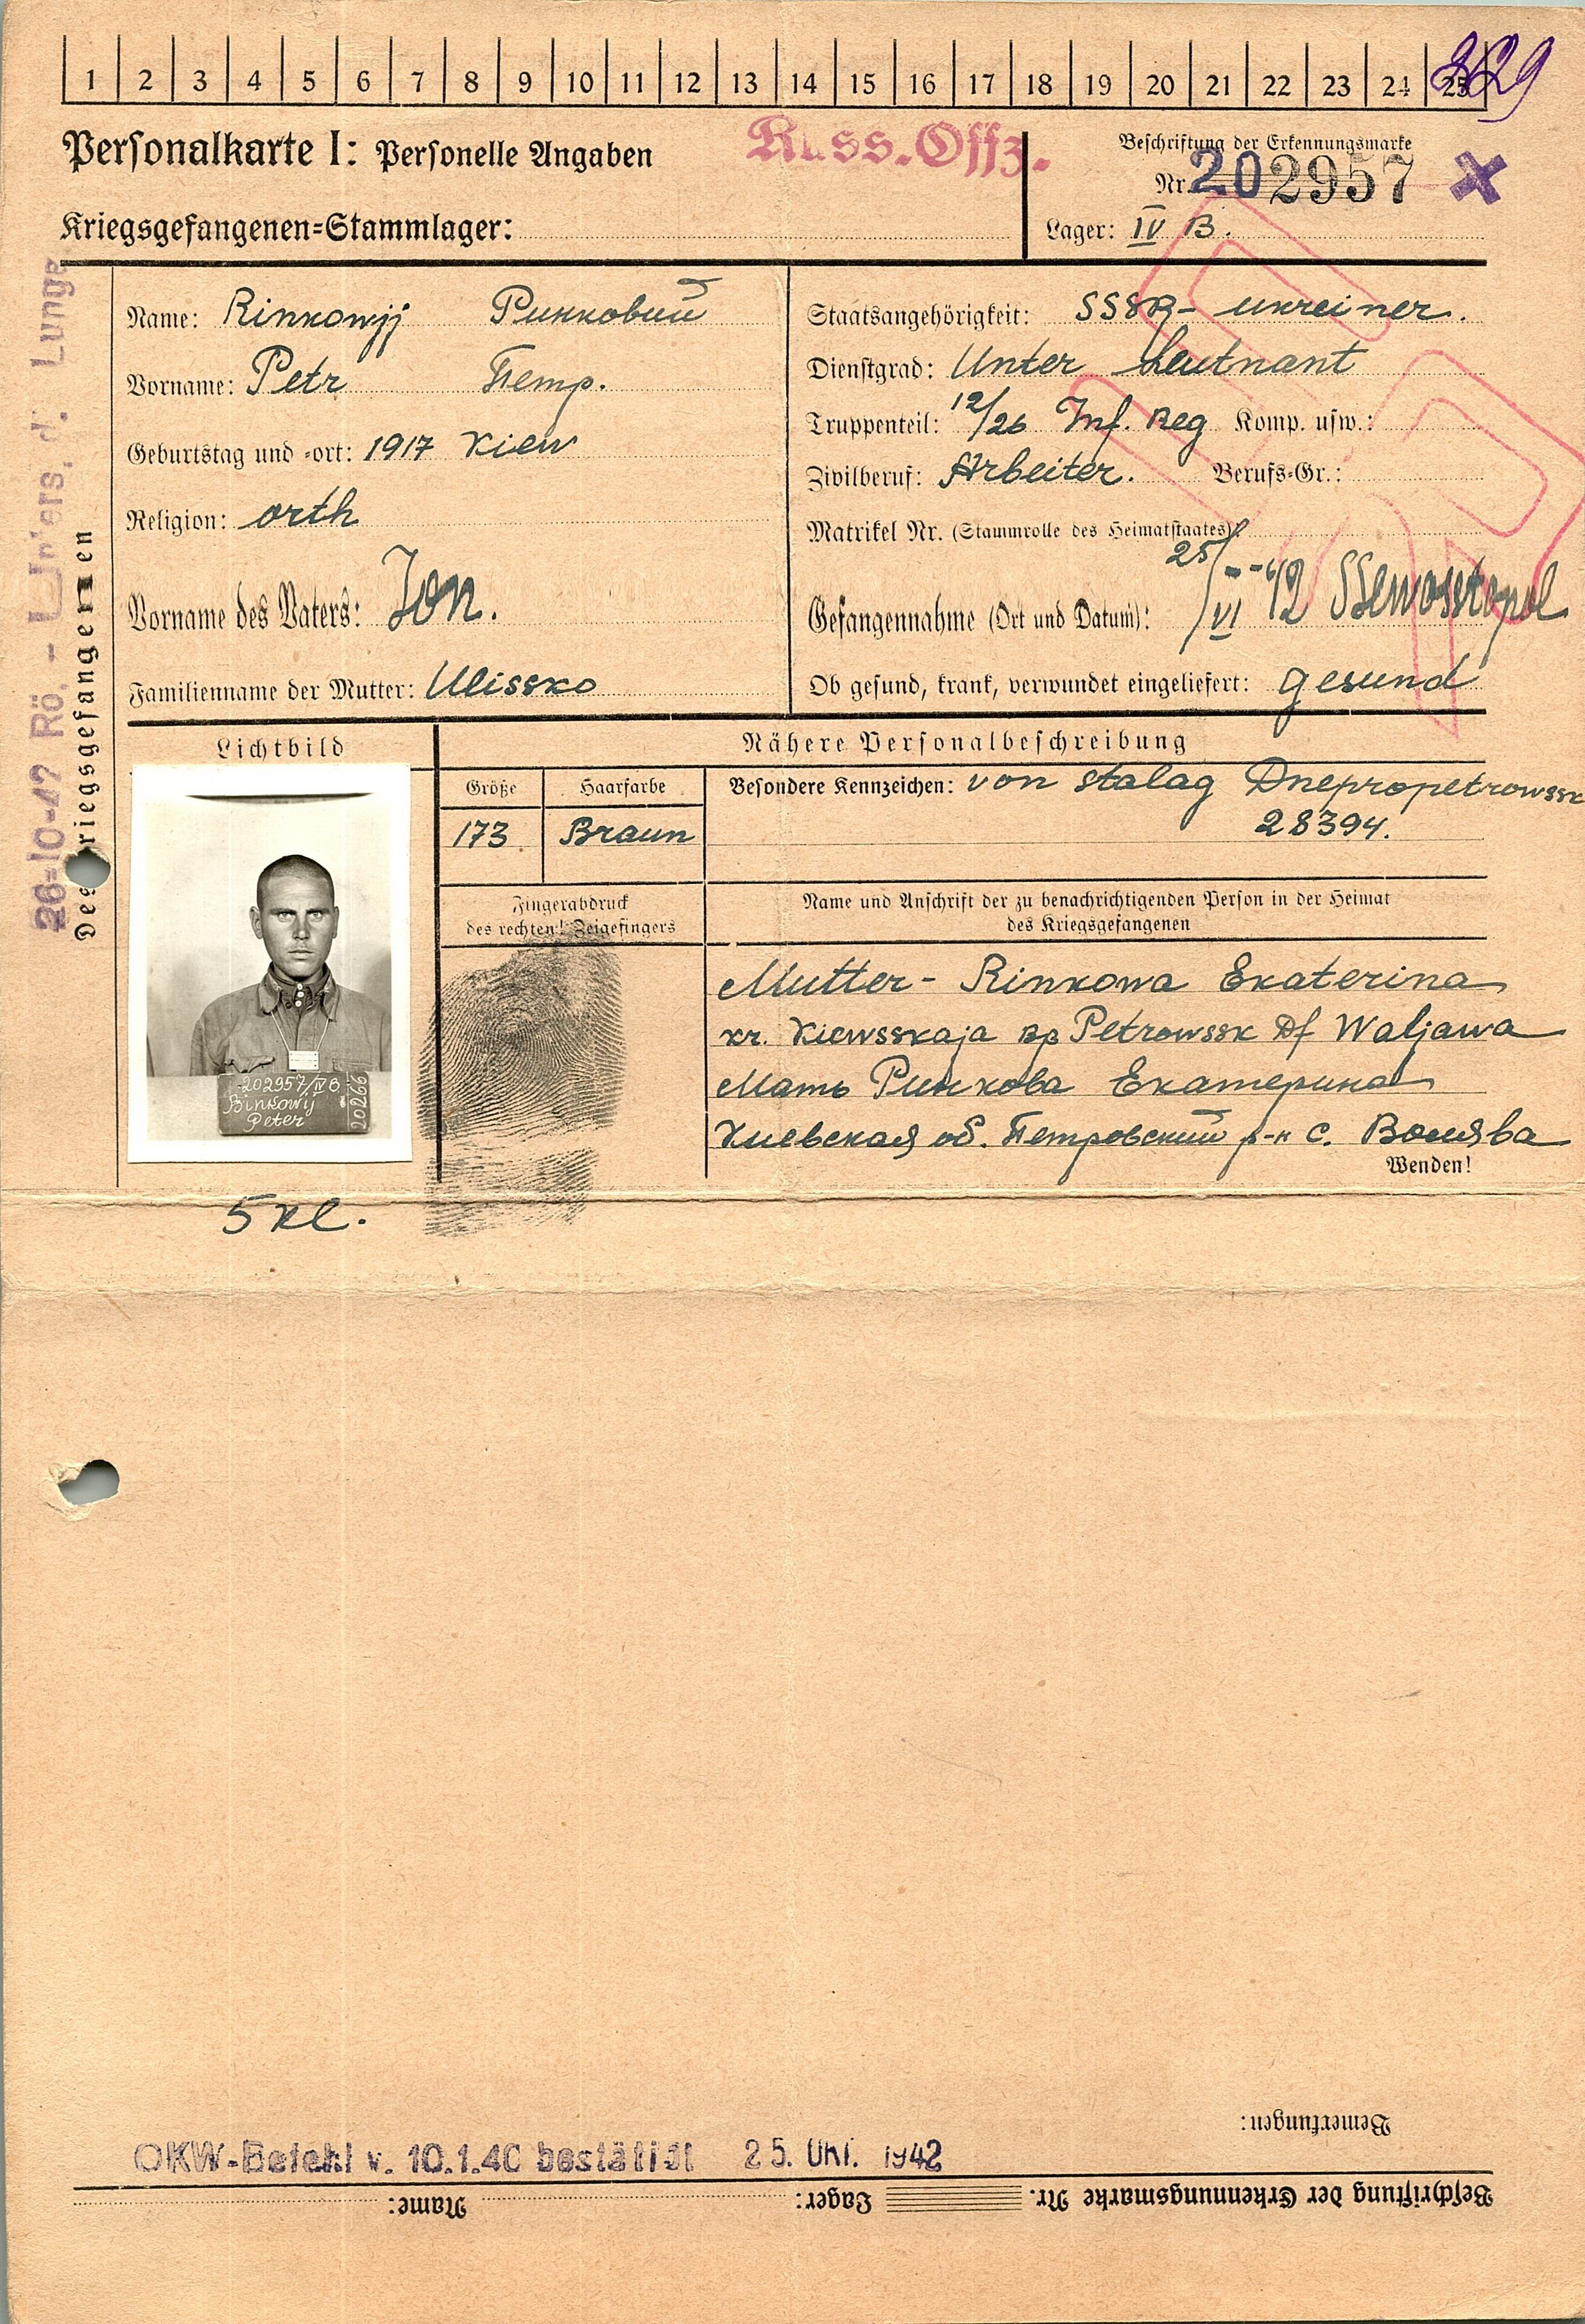 1 2 3 4 5 6 7 8 9 10 11 12 13 14 15 16 17 18 19 20 21 22 23 24 25
Personalkarte I: Personelle Angaben
Russ. Offz.
Beschriftung der Erkennungsmarke
Nr. 202957
Kriegsgefangenen=Stammlager:
Lager: IV B.
Name: Rinkowjj Ринковий
Vorname: Petr Петр.
Geburtstag und =ort: 1917 Kiew
Religion: orth
Vorname des Vaters: Ion.
Familienname der Mutter: Ulissko
Staatsangehörigkeit: SSSR - ukreiner.
Dienstgrad: Unter Leutnant
Truppenteil: 12/26 Inf. Reg Komp. usw.:
Zivilberuf: Arbeiter. Berufs=Gr.:
Matrikel Nr. (Stammrolle des Heimatstaates):
Gefangennahme (Ort und Datum): 25/VI 42 SSewosstopol
Ob gesund, krank, verwundet eingeliefert: gesund
Des Kriegsgefangenen
26-10-42 Rö. - Unters. d. Lunge
Lichtbild
Nähere Personalbeschreibung
Größe
Haarfarbe
173
Braun
Besondere Kennzeichen: von stalag Dnepropetrowssk
28394.
Fingerabdruck
des rechten! Zeigefingers
Name und Anschrift der zu benachrichtigenden Person in der Heimat
des Kriegsgefangenen
Mutter - Rinkowa Ekaterina
kr. Kiewsskaja Petrowssk Df Waljawa
Мать Ринкова Екатерина
Киевская об. Петровский р-н с. Волява
Wenden!
202957/IV B
Rinkowij
Peter
20266
5 kl.
Bemerkungen:
OKW-Befehl v. 10.1.40 bestätigt 25. Okt. 1942
Beschriftung der Erkennungsmarke Nr. Lager: Name: